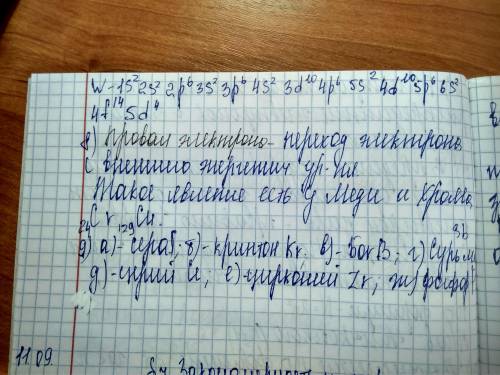 W-1S²2S²2p⁶3S²3p⁶4S²3d¹⁰4p⁶5S²4d¹⁰5p⁶6S²
4f¹⁴5d⁴
8) Провал электрона- переход электрона
с внешнего энергетич ур-ня
Такое явление есть у меди и Хрома
₂₄Cr, ₂₉Cu.
9) а)-сера S; б)-криптон Kr. в)-Бор B; г) Сурьма Sb
д)- ; е)-цирконий Zr; ж) фосфор
11.09.